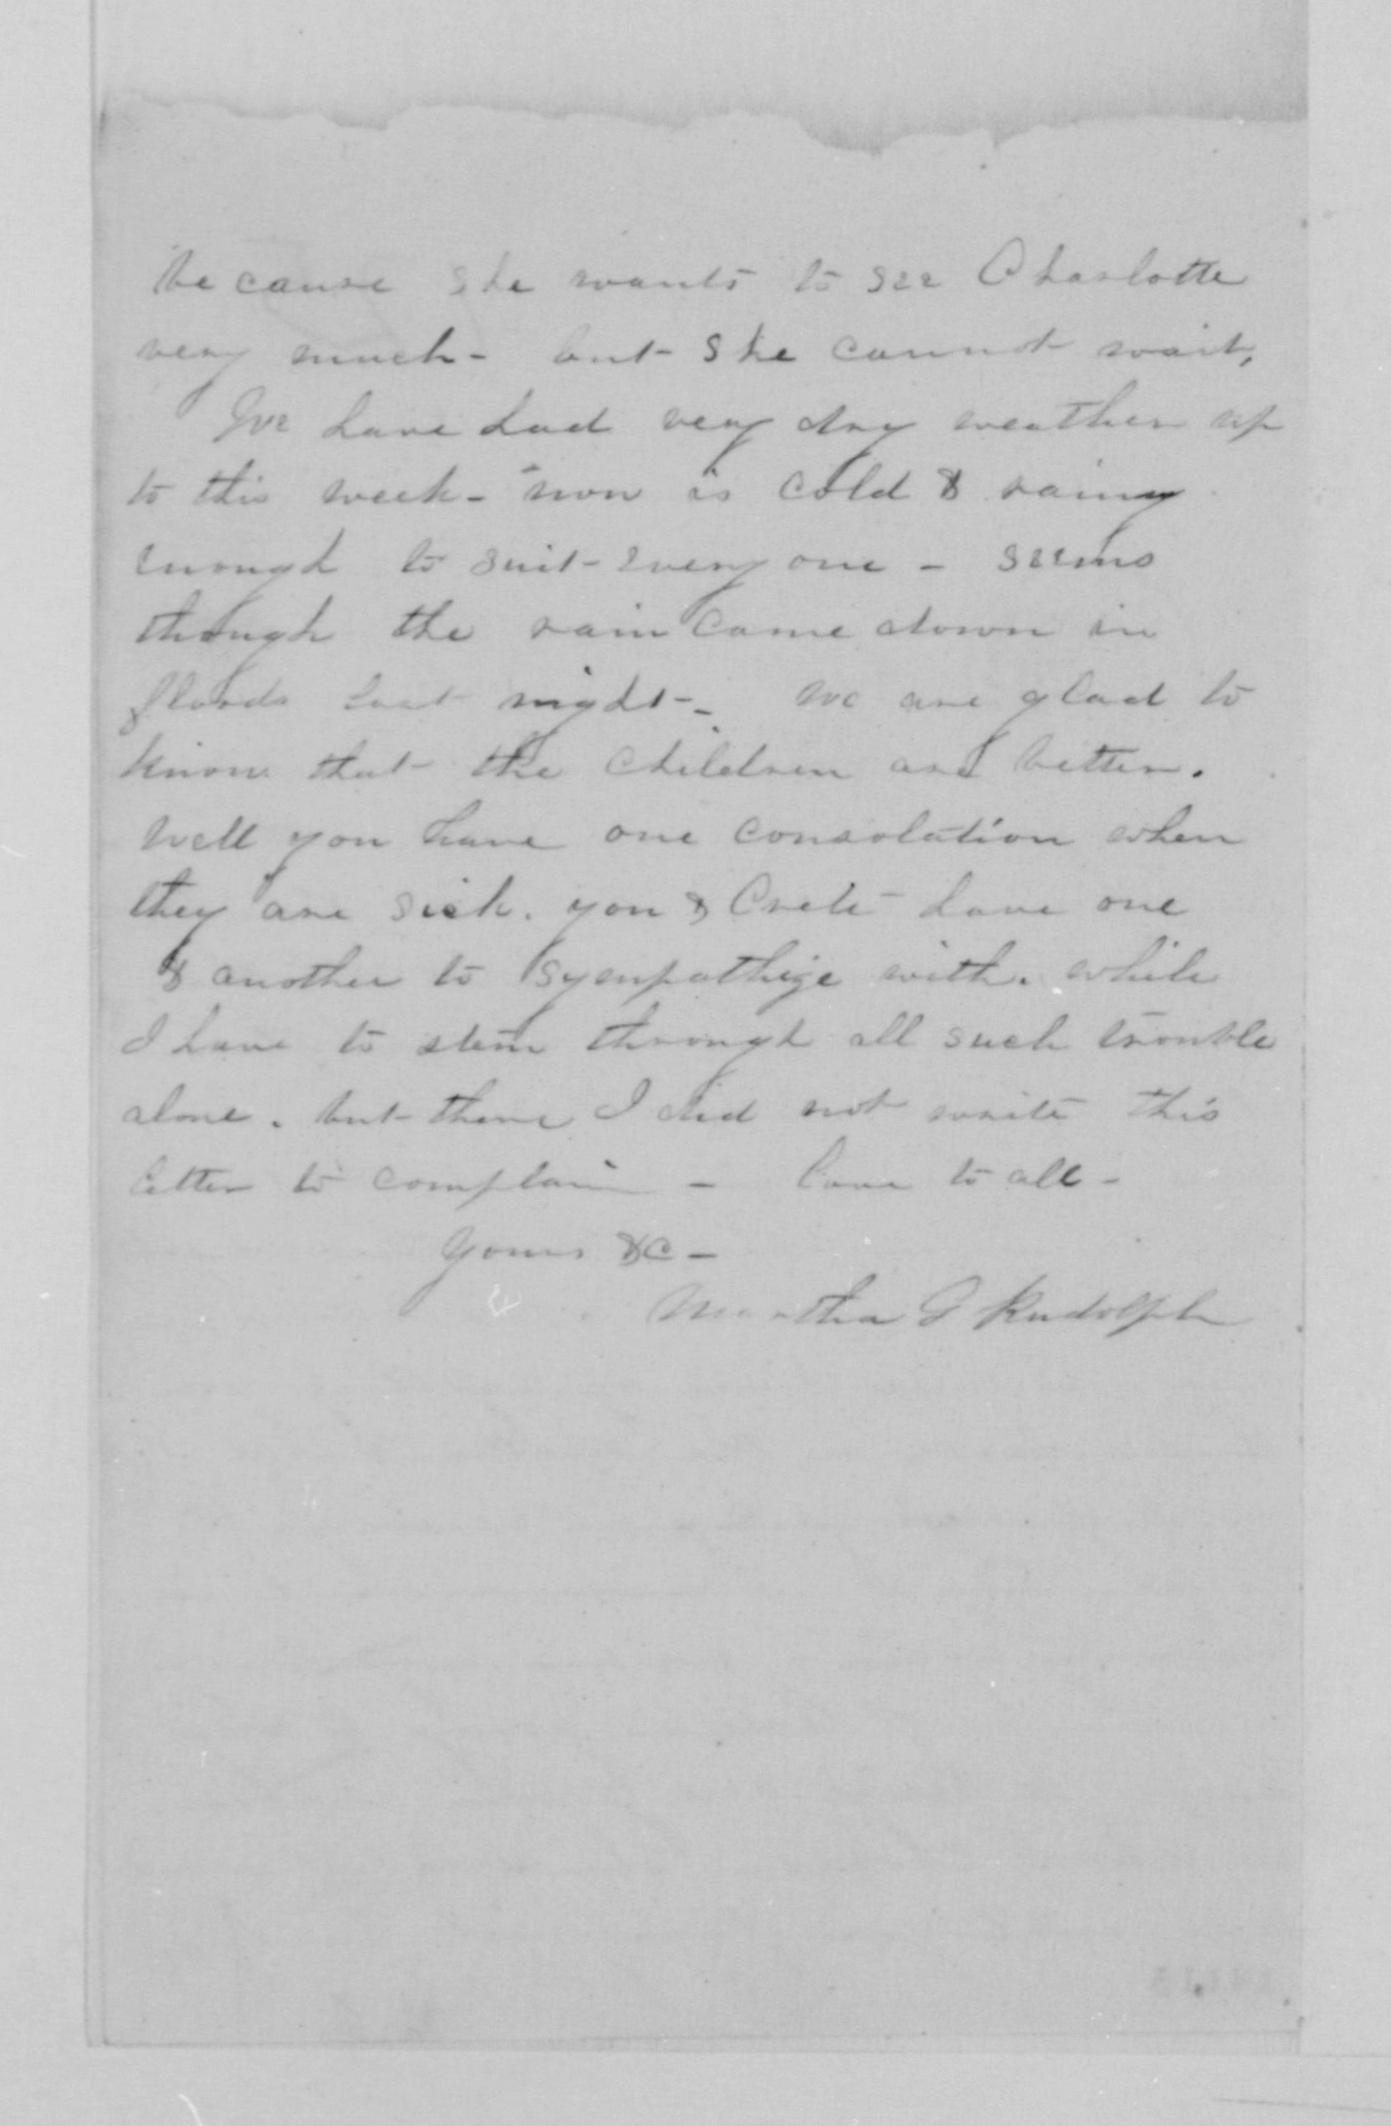 because she wants to see Charlotte
very much - but she cannot wait,
We have had very dry weather up
to this week - now is cold & rainy
enough to suit every one - seems
though the rain came down in
floods last night - We are glad to
know that the children are better.
Well you have one consolation when
they are sick. you & Crete have one
& another to sympathize with. while
I have to stem through all such trouble
alone. but there I did not write this
letter to complain - Love to all -
Yours &c -
Martha J Rudolph